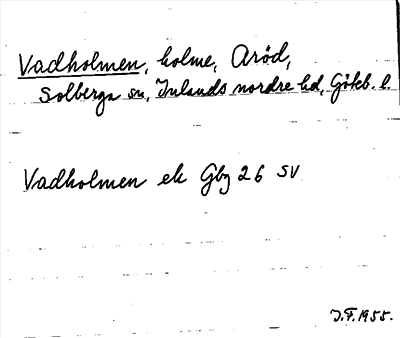 Vadholmen, holme, Aröd,
Solberga sn, Inlands nordre hd, Göteb. l.
Vadholmen ek Gbg 26 SV
J.F. 1955.